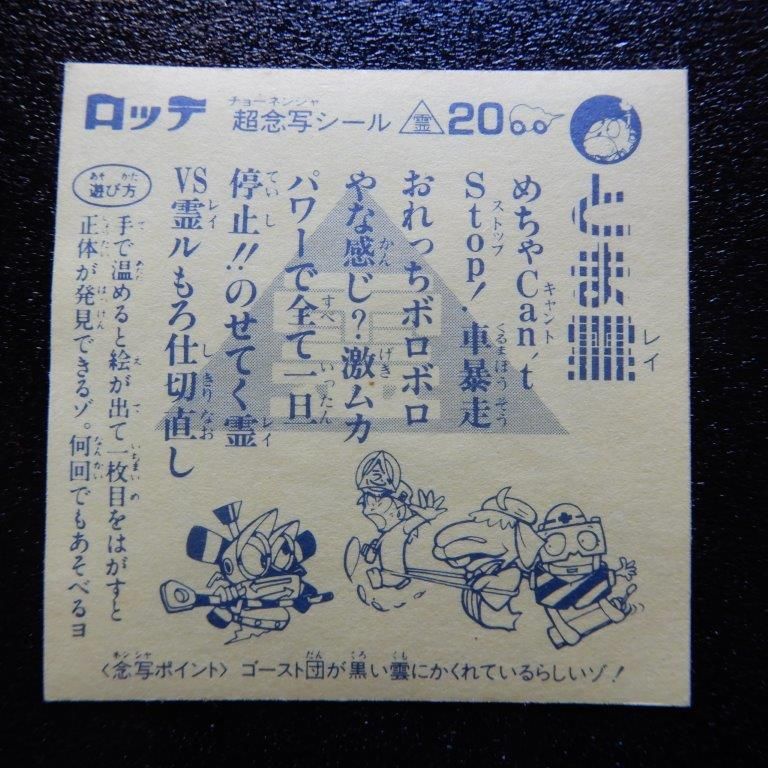 ロッテ
チョーネンシャ
超念写シール
霊
20
とま霊
レイ
めちゃCan't
キャント
Stop!車暴走
ストップ
くるまぼうそう
おれっちボロボロ
やな感じ?激ムカ
かん
げき
パワーで全て一旦
すべ
いったん
停止!!のせてく霊
ていし
レイ
VS霊ルもろ仕切直し
レイ
しきりなお
遊び方
あそ かた
手で温めると絵が出て一枚目をはがすと
て
あたた
え
で
いちまいめ
正体が発見できるゾ。何回でもあそべるヨ
しょうたい
はっけん
なんかい
霊
念
〈念写ポイント〉ゴースト団が黒い雲にかくれているらしいゾ!
ネンシャ
だん
くろ
くも